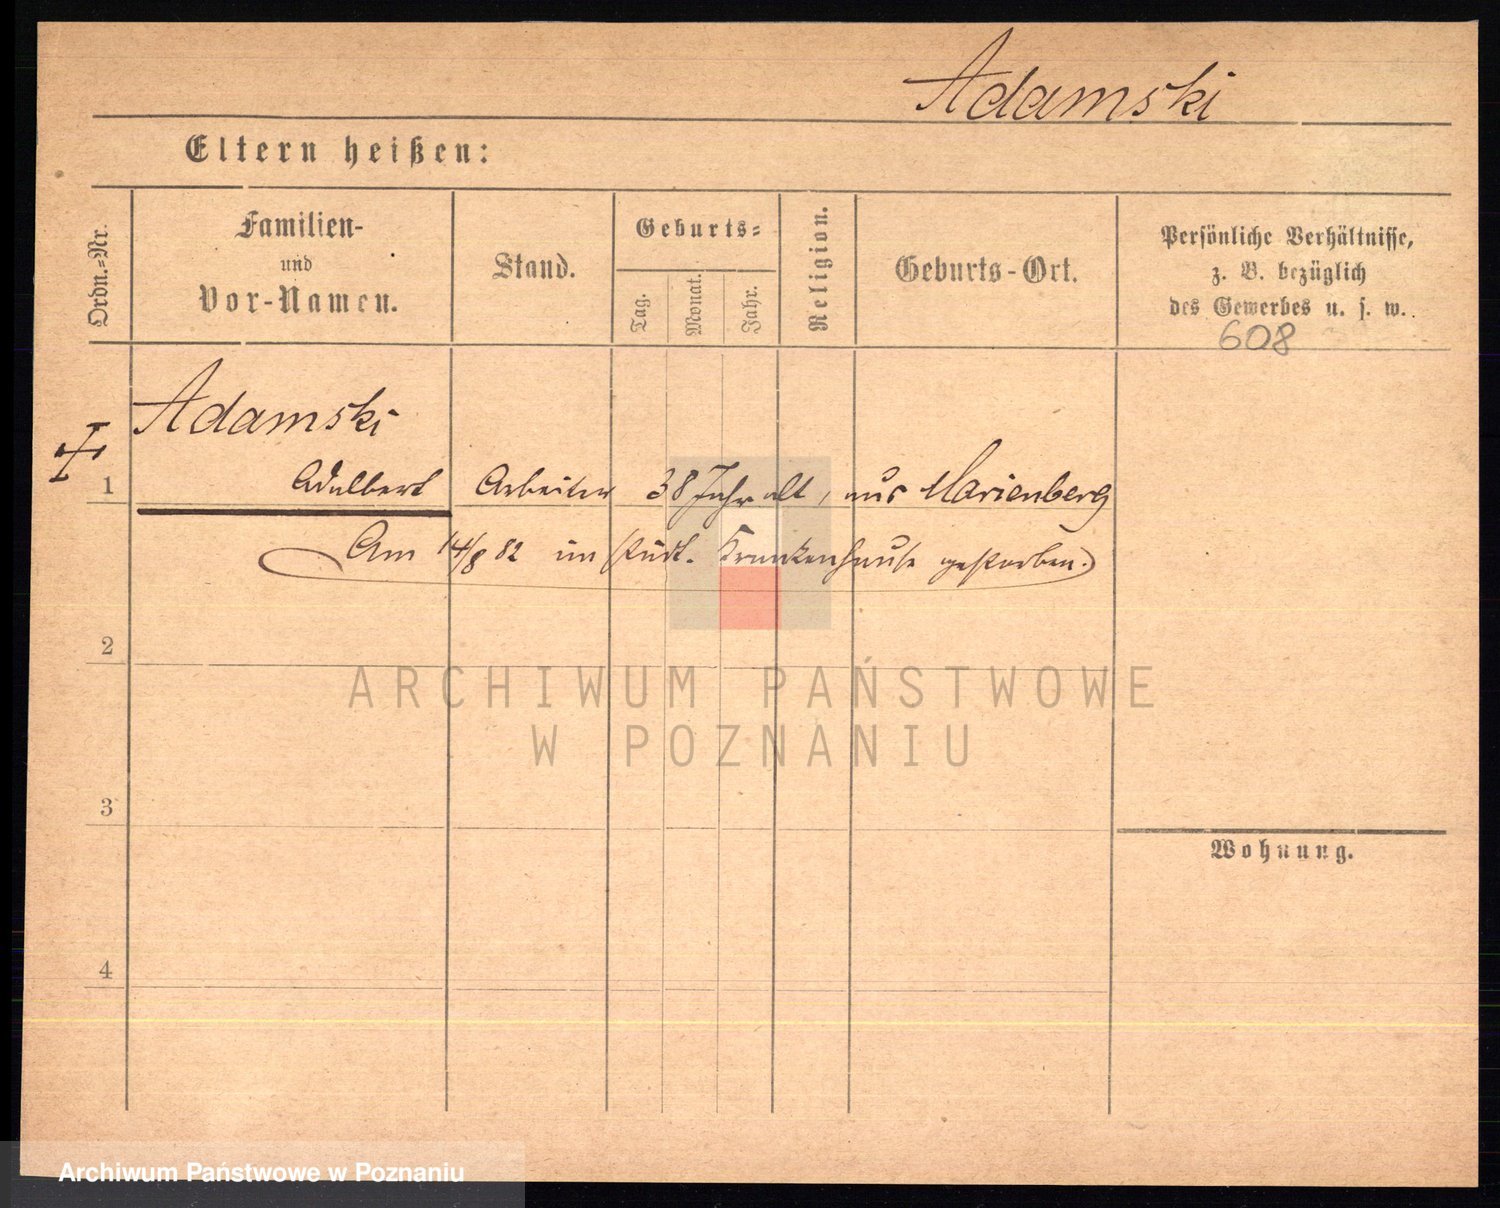 Adamski
Eltern heißen:
Ordn.-Nr.
Familien-
und
Vor-Namen.
Stand.
Geburts-
Tag.
Monat.
Jahr.
Religion.
Geburts-Ort.
Persönliche Verhältnisse,
z. B. bezüglich
des Gewerbes u. s. w.
608
Adamski
1 Adalbert Arbeiter 38 Jahr alt, aus Marienberg
Am 14/8 82 im städt. Krankenhause gestorben.
2
ARCHIWUM PAŃSTWOWE
W POZNANIU
3
Wohnung.
4
Archiwum Państwowe w Poznaniu